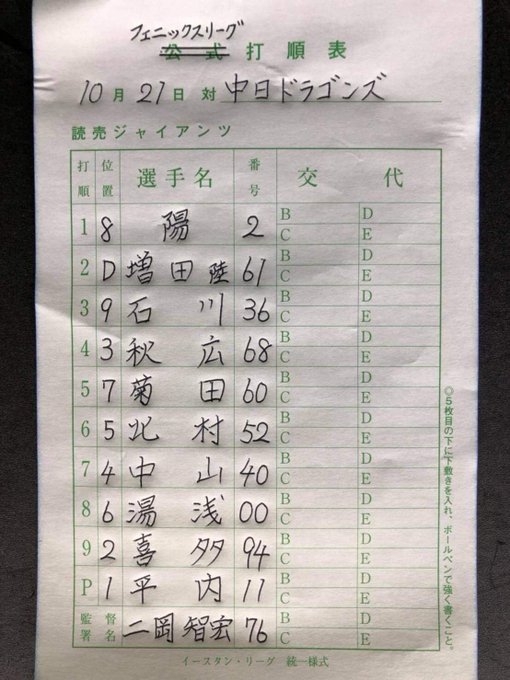 フェニックスリーグ
公式打順表
10月21日 対 中日ドラゴンズ
読売ジャイアンツ
打順 位置 選手名 番号 交代
1 8 陽 2 B D C E
2 D 増田陸 61 B D C E
3 9 石川 36 B D C E
4 3 秋広 68 B D C E
5 7 菊田 60 B D C E
6 5 北村 52 B D C E
7 4 中山 40 B D C E
8 6 湯浅 00 B D C E
9 2 喜多 94 B D C E
P 1 平内 11 B D C E
監督署名 二岡智宏 76 B D C E
◎5枚目の下に下敷きを入れ、ボールペンで強く書くこと。
イースタン・リーグ 統一様式